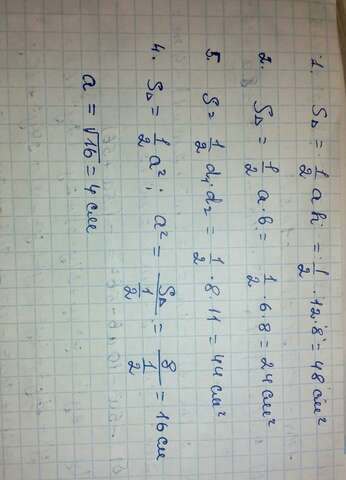 1. S△ = 1/2 ah = 1/2 · 12 · 8 = 48 см²
2. S△ = 1/2 a · b = 1/2 · 6 · 8 = 24 см²
5. S = 1/2 d₁ · d₂ = 1/2 · 8 · 11 = 44 см²
4. S△ = 1/2 a²; a² = S△ / 1/2 = 8 / 1/2 = 16 см
a = √16 = 4 см